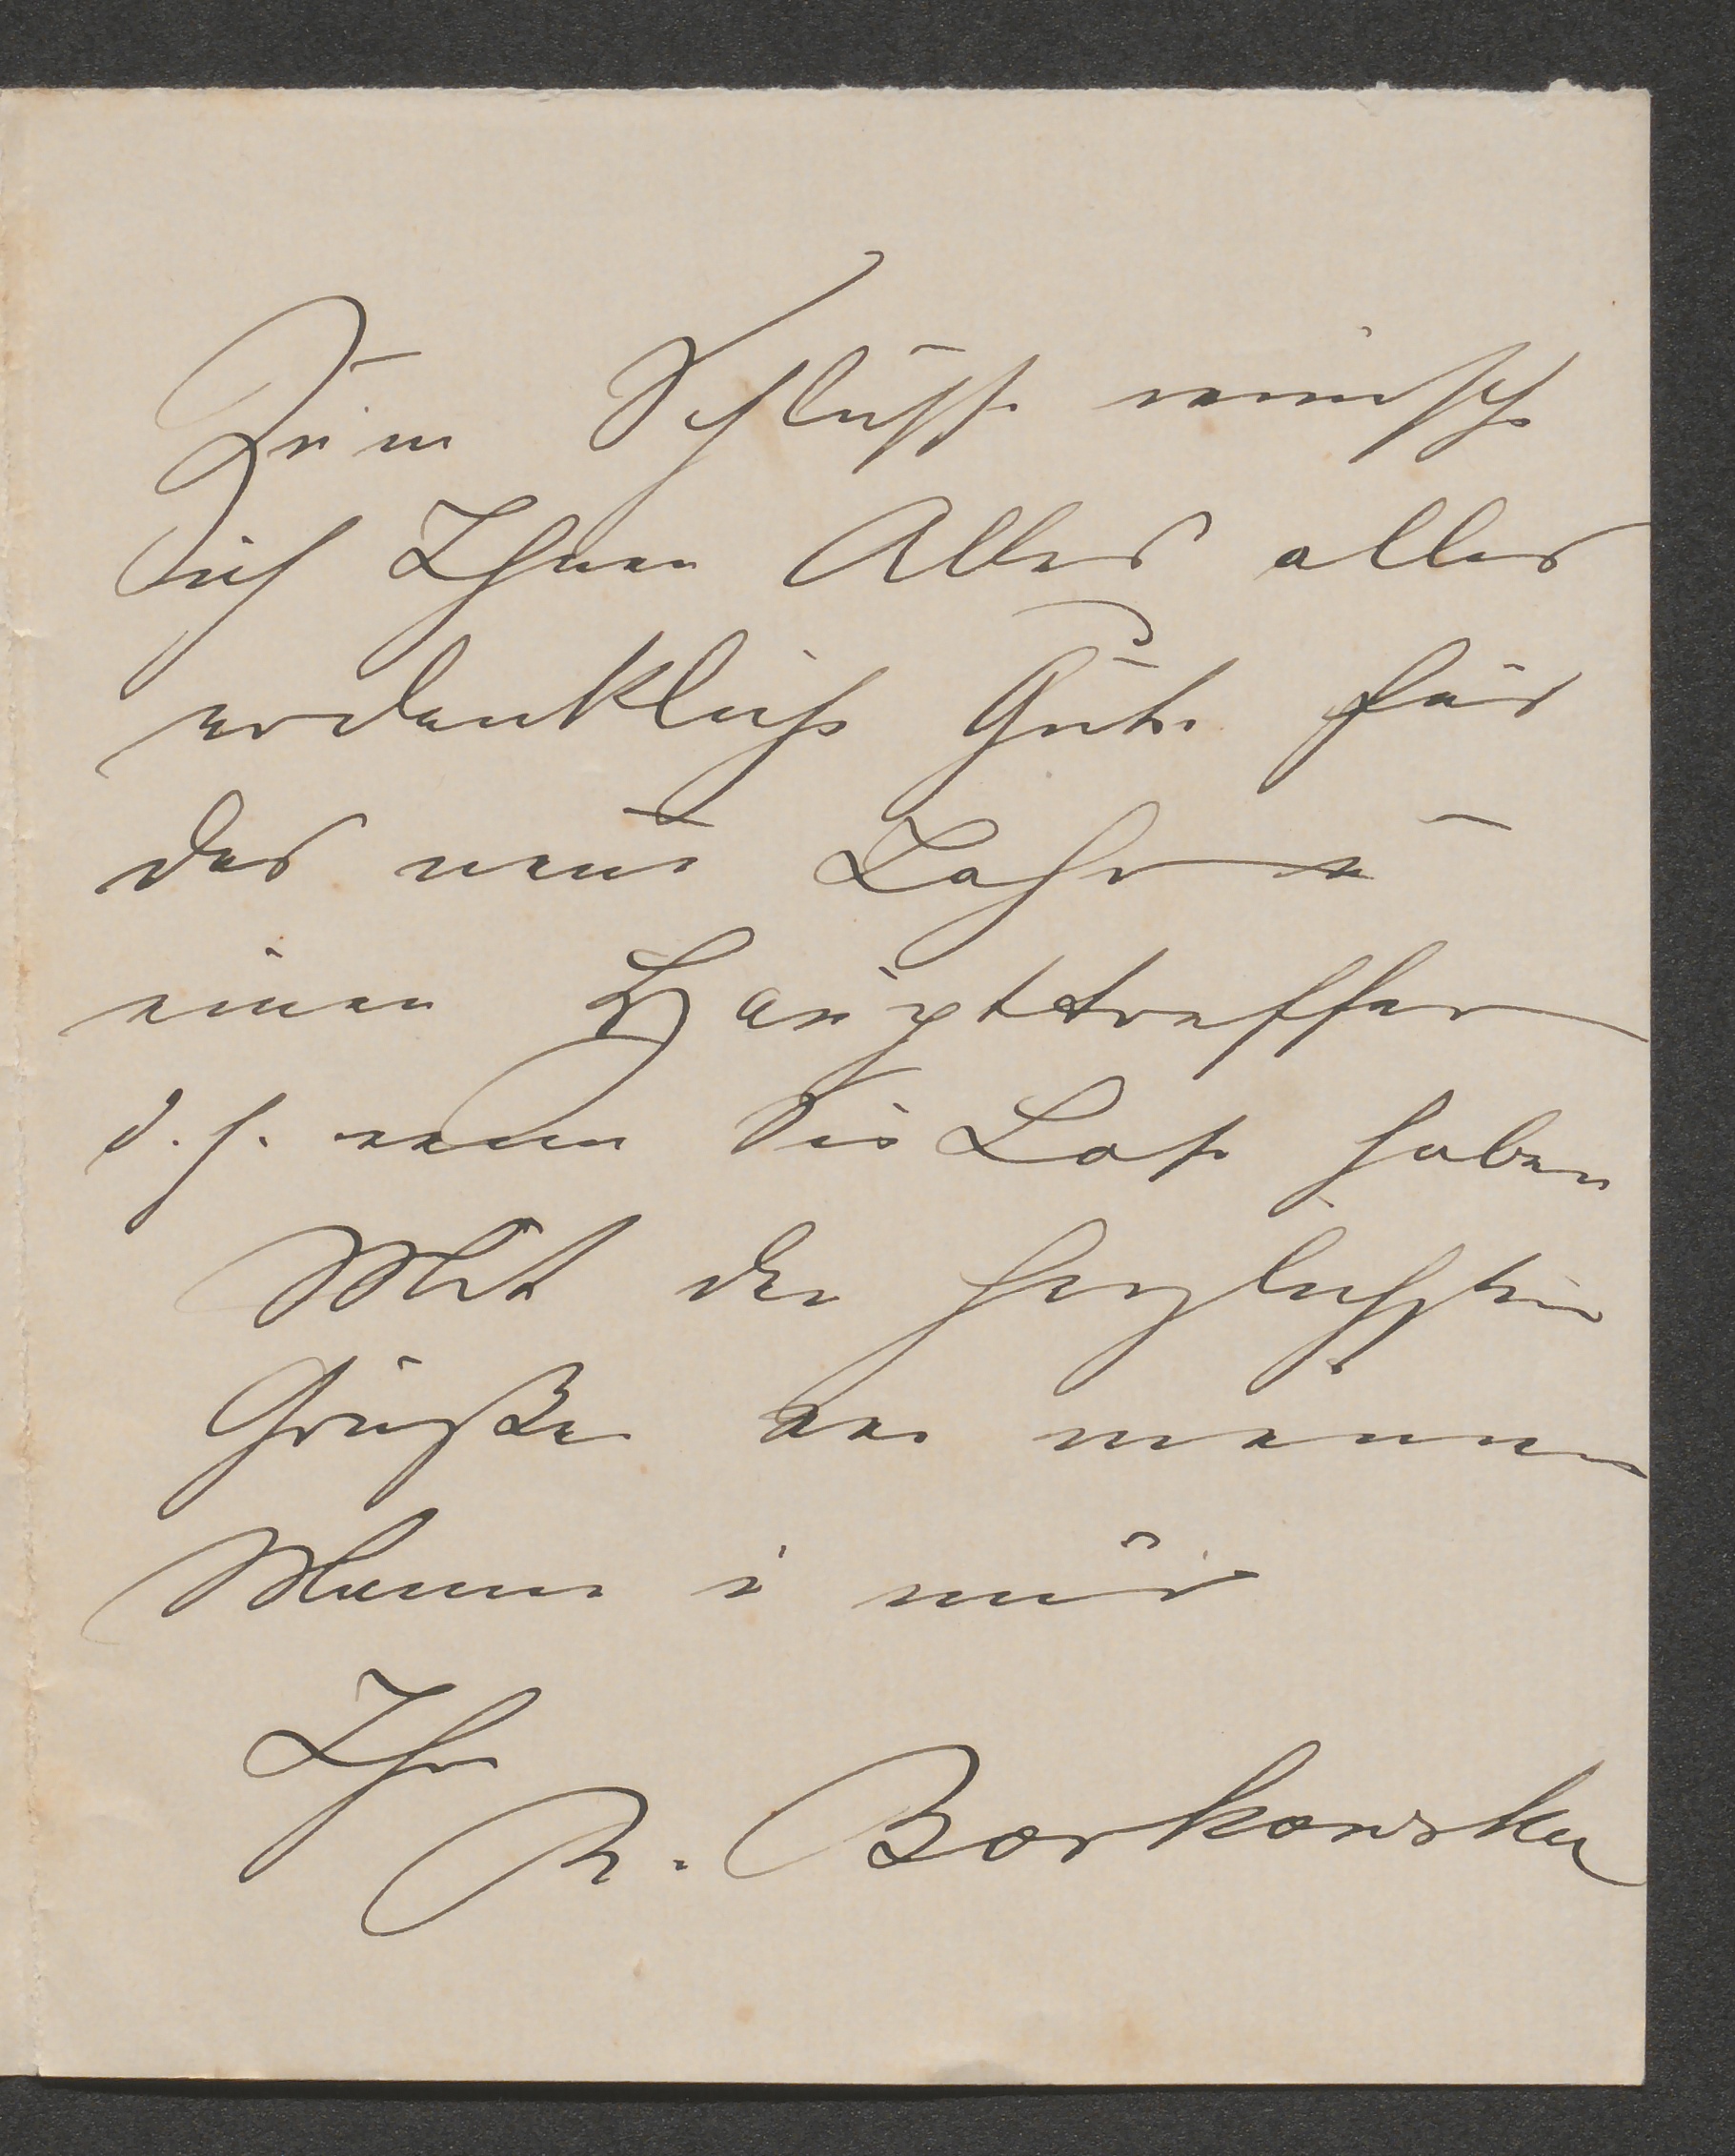 Zum Schluße wünsche
ich Ihnen Alles alles
erdenkliche Gute für
das neue Jahr u
einen Haupttreffer
d. h. wenn Sie Lose haben
Mit den herzlichsten
Grüßen von meinem
Manne u mir
Ihre
R. Borkowska